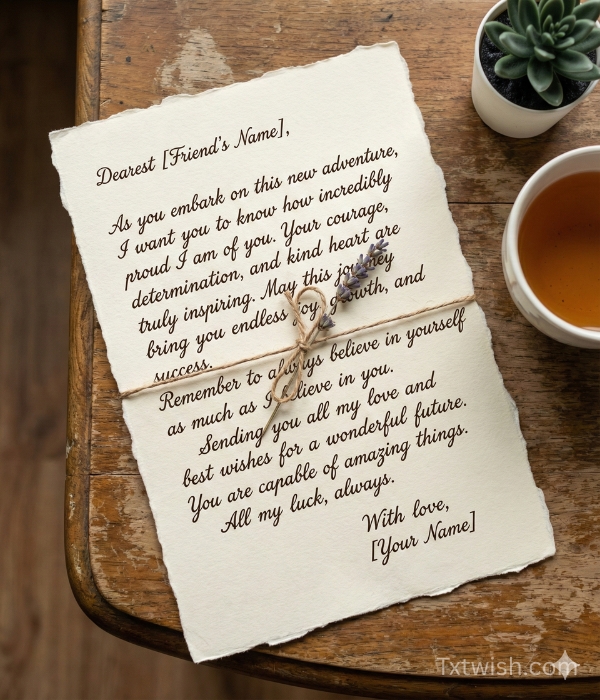 Dearest [Friend's Name],
As you embark on this new adventure,
I want you to know how incredibly
proud I am of you. Your courage,
determination, and kind heart are
truly inspiring. May this journey
bring you endless joy, growth, and
success.
Remember to always believe in yourself
as much as I believe in you.
Sending you all my love and
best wishes for a wonderful future.
You are capable of amazing things.
All my luck, always.
With love,
[Your Name]
Txtwish.com